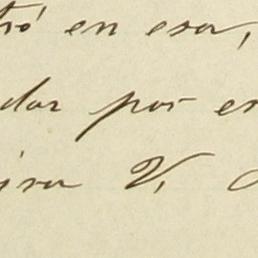 tró en esa,
dar por es
ira V.